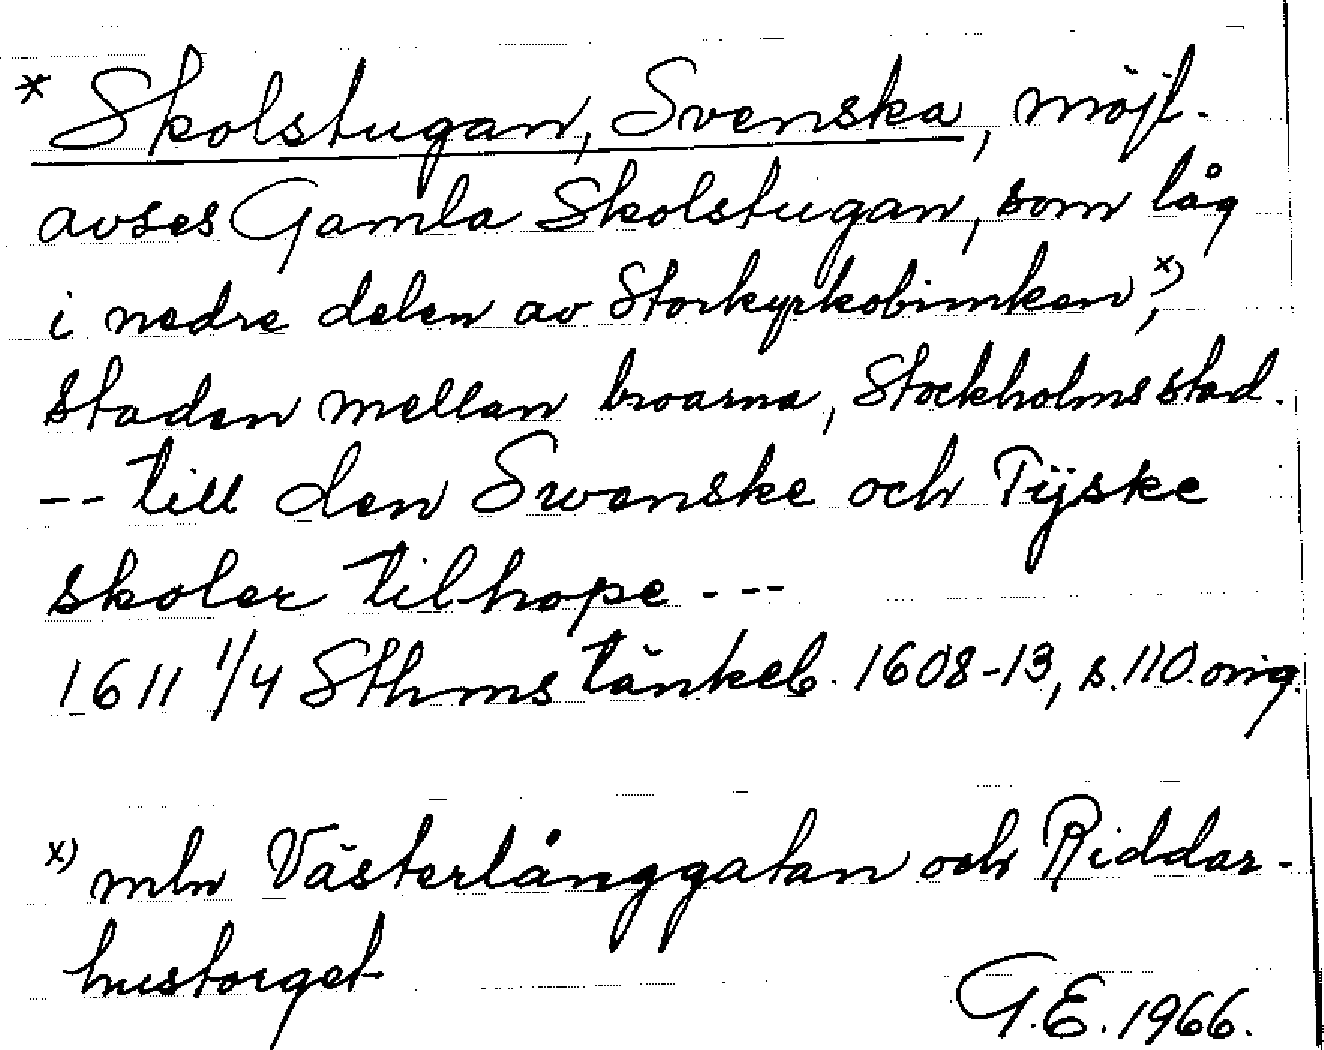 * Skolstugan, Svenska, möjl.
avses Gamla Skolstugan, som låg
i nedre delen av Storkyrkobrinken x),
staden mellan broarna, Stockholms stad.
-- till den Swenske och Tÿske
skoler tilhope ---
1611 1/4 Sthms tänkeb. 1608-13, s. 110 orig.
x) mln Västerlånggatan och Riddar-
hustorget
G.E. 1966.